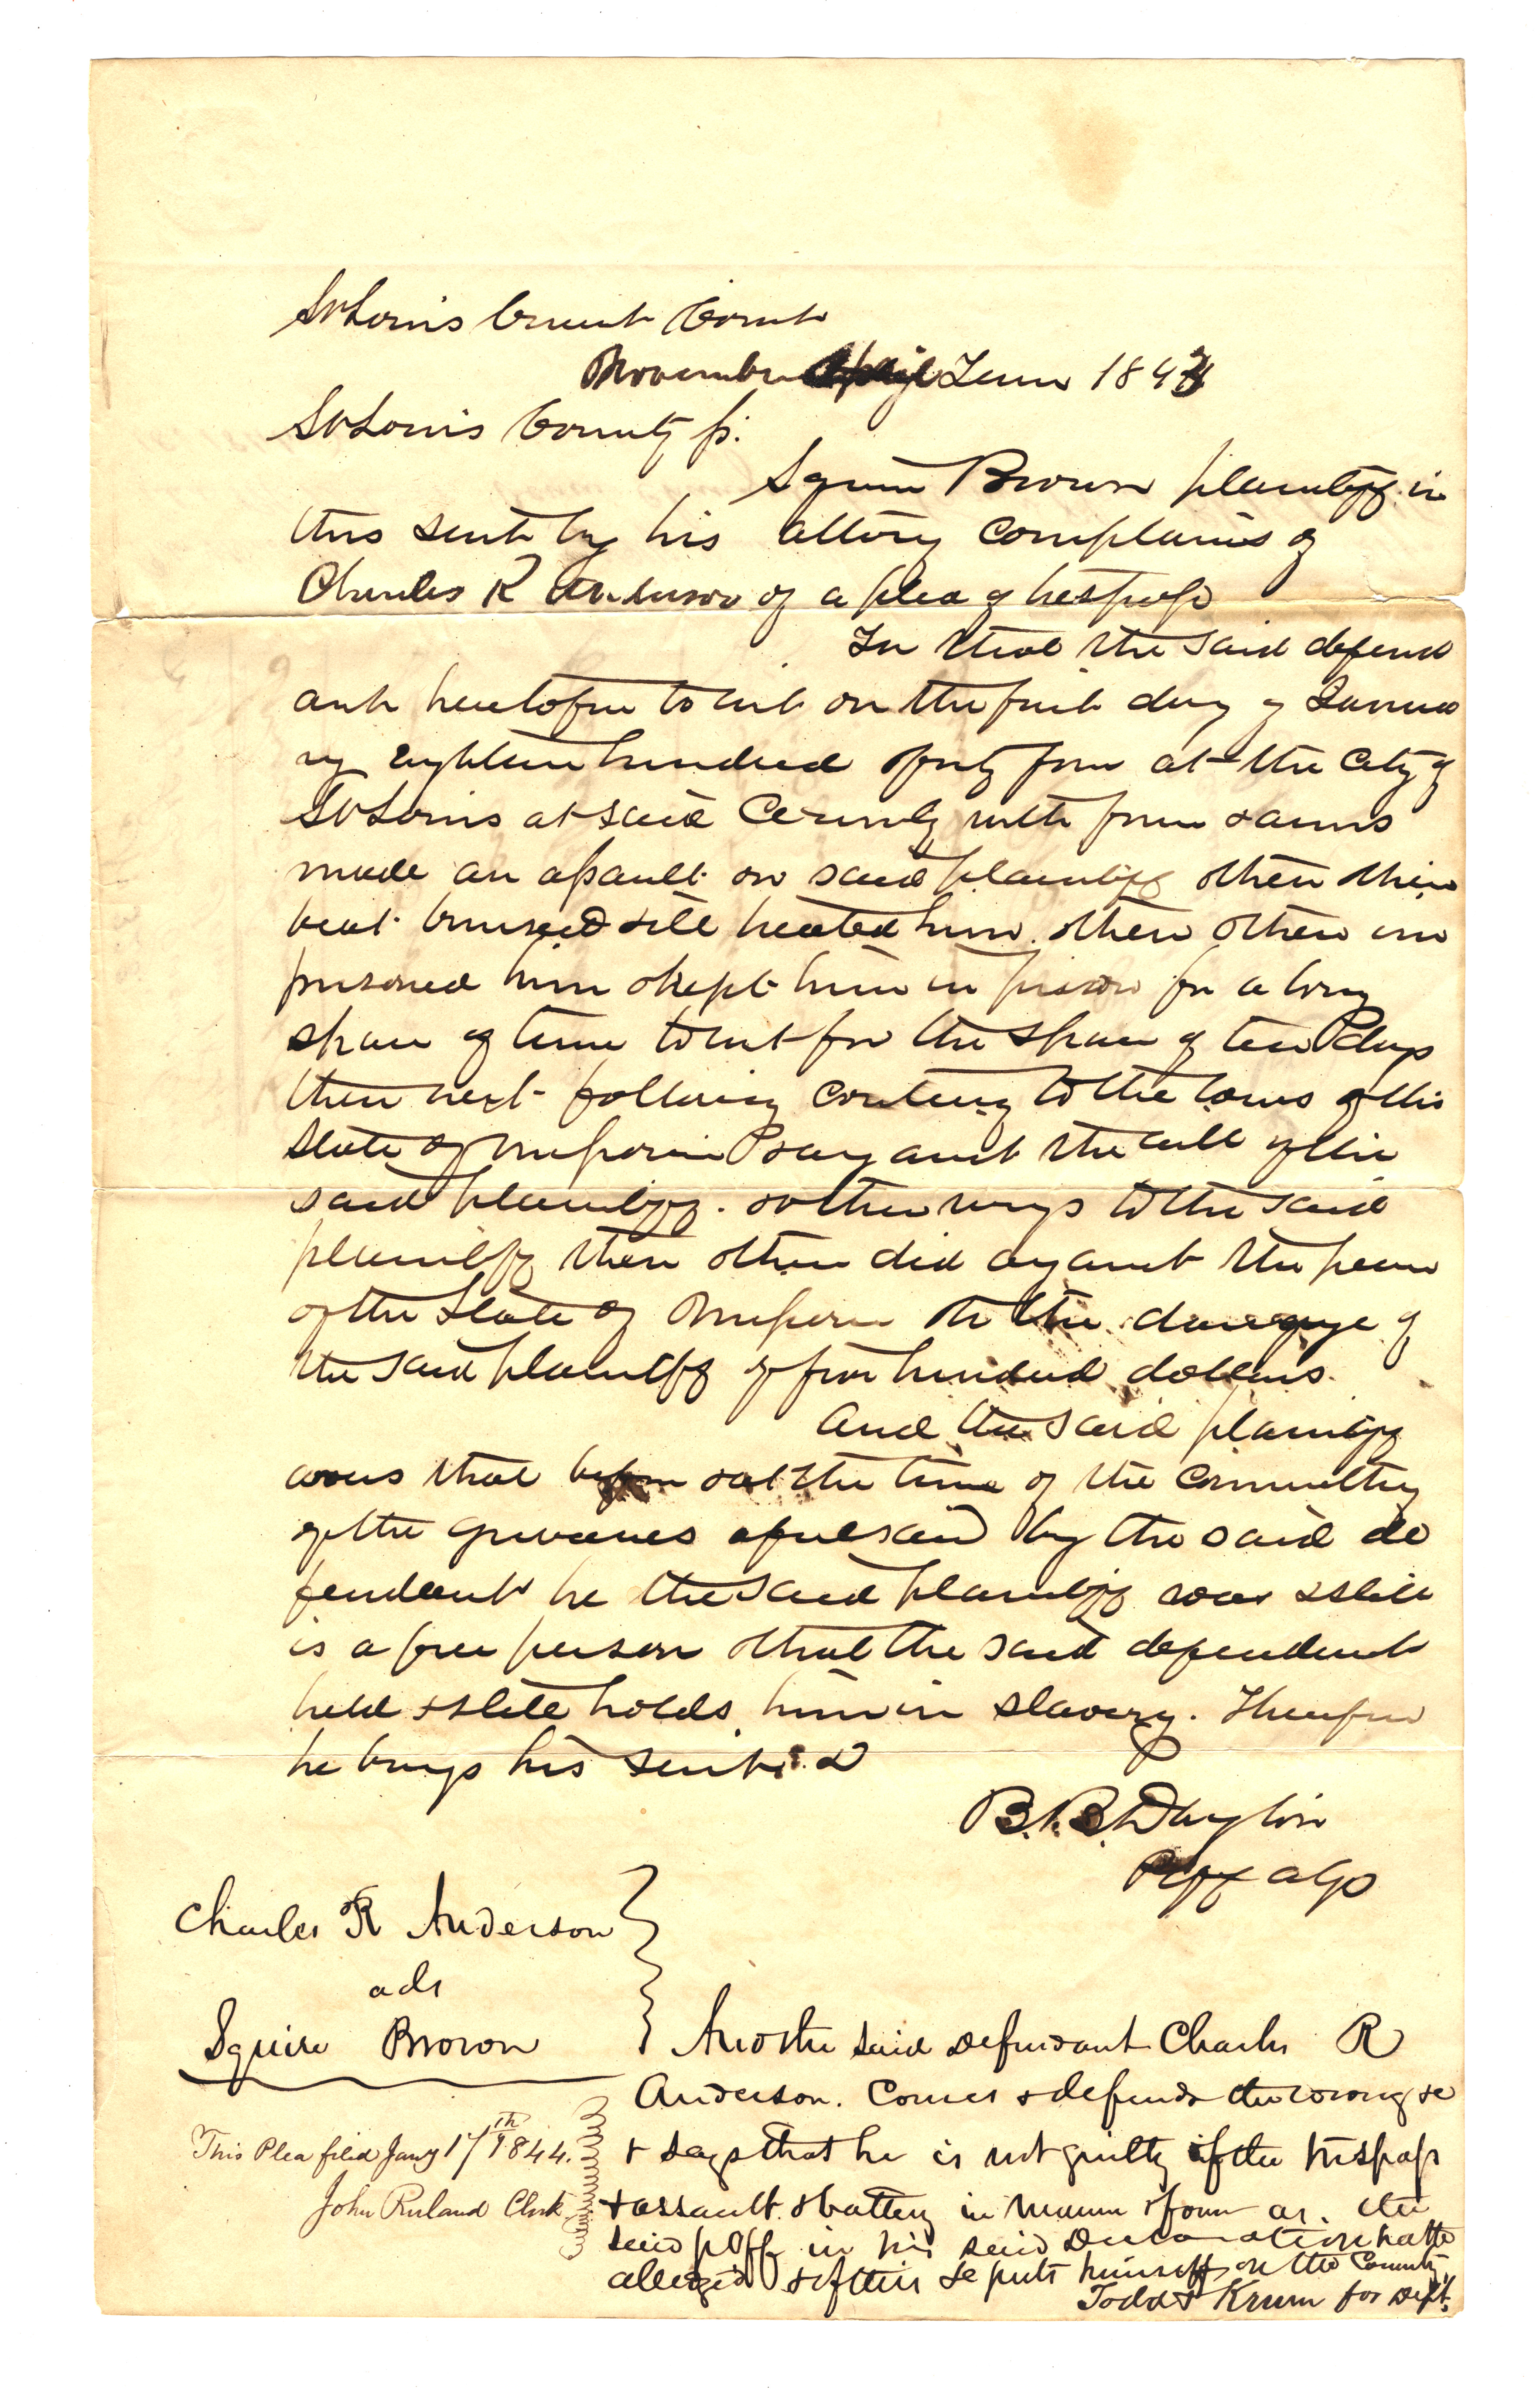 St Louis Circuit Court
November ~~April~~ Term 1843
St Louis County ss.
Squire Brown plaintiff in
this suit by his attory complains of
Charles R Anderson of a plea of trespass
In that the said defend
ant heretofore to wit on the first day of Janua
ry eighteen hundred & forty four at the City of
St Louis at said County with force & arms
made an assault on said plaintiff & then & there
beat bruised & ill treated him & then & there im
prisoned him & kept him in prison for a long
space of time to wit for the space of ten days
then next following contrary to the laws of the
State of Missouri & against the will of the
said plaintiff. & other wrongs to the said
plaintiff then & there did against the peace
of the State of Missouri & to the damage of
the said plaintiff of five hundred dollars.
And the said plaintiff
avers that before & at the time of the committing
of the grievances aforesaid by the said de
fendant he the said plaintiff was & still
is a free person & that the said defendant
held & still holds him in slavery. Therefore
he brings his suit &
B. B. Dayton
Plff atty
Charles R Anderson
ads
Squire Brown
And the said defendant Charles R
Anderson. Comes & defends the wrong &c
& says that he is not guilty of the trespass
& assault & battery in manner & form as. the
said plff in his said Declaration hath
alleged & of this he puts himself on the County
Todd & Krum for Deft.
This Plea filed Jany 17th 1844.
John Ruland Clerk